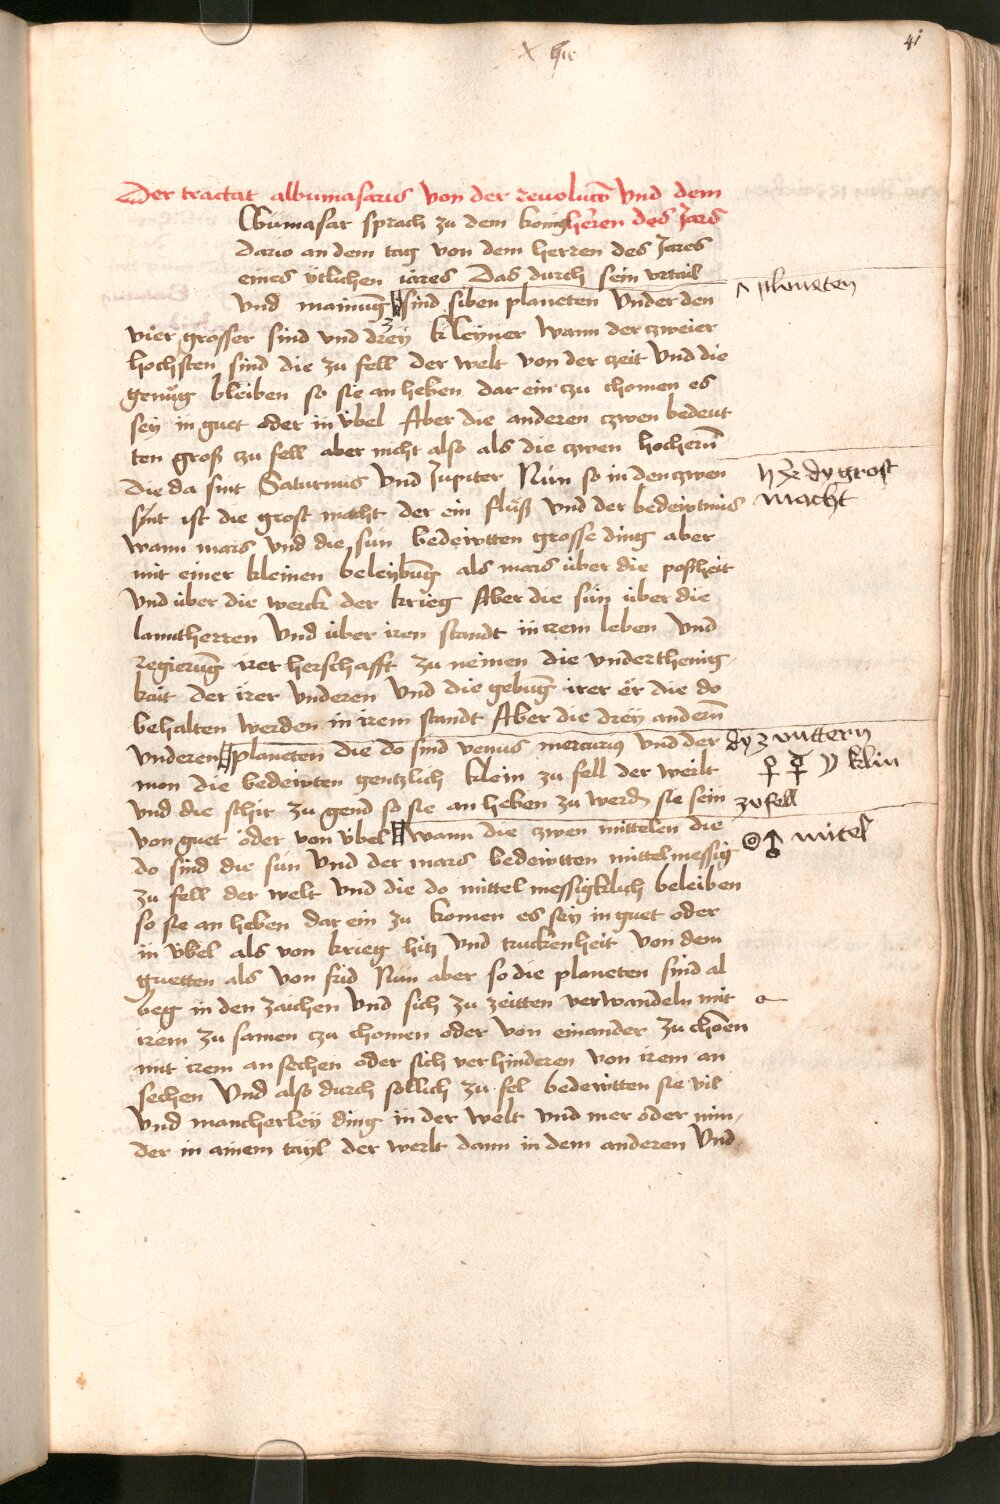 41
Der tractat albumasarus von der reuolucō vnd dem
herēn des Jars
Albumasar sprach zu dem konig
dario an dem tag von dem herren des Jares
eines ytlichen iares Das durch sein vrtail
vnd mainūg sind siben planeten vnder den
planeten
vier grosser sind vnd drey kleyner Wann der zweier
hochsten sind die zu fell der welt von der zeit vnd die
genug bleiben so sie an heben dar ein zu chomen es
sey in guet oder in vbel Aber die anderen zwen bedeut
ten groß zu fell aber nicht also als die zwen hochern
die da sint Saturnus vnd Jupiter Nun so in den zwen
♄ ♃ dy grost
macht
sint ist die grost macht der ein fluß vnd der bedeiwtnus
wann mars vnd die sun bedeiwtten grosse ding aber
mit einer kleinen beleybūg als mars über die poßheit
vnd über die werck der krieg Aber die sün über die
lantherren vnd über iren standt in irem leben vnd
regierūg irer herschafft zu nemen die vnderthenig
kait der irer vnderen vnd die gebūg irer er die do
behalten werden in irem standt Aber die drey andern
vnderen planeten die do sind venus mercurius vnd der
dy 3 vnttern
mon die bedeiwten gentzlich klein zu fell der weilt
♀ ☿ ☽ klin
vnd die schir zu gend so sie an heben zu werdn sie sein
zufell
von guet oder von vbel wann die zwen mittelen die
☉ ♂ mitel
do sind die sun vnd der mars bedeiwtten mittelmessig
zu fell der welt vnd die do mittel messigklich beleiben
so sie an heben dar ein zu komen es sey in guet oder
in vbel als von krieg hitz vnd truckenheit von dem
guetten als von frid Nun aber so die planeten sind al
beg in den zaichen vnd sich zu zeitten verwandeln mit
irem zu samen zu chomen oder von einander zu chōen
mit irem an sechen oder sich verhinderen von irem an
sechen Vnd also durch sollich zu fel bedeiwtten sie vil
vnd mancherley ding in der welt vnd mer oder min
der in ainem tayl der werlt dann in dem anderen Vnd